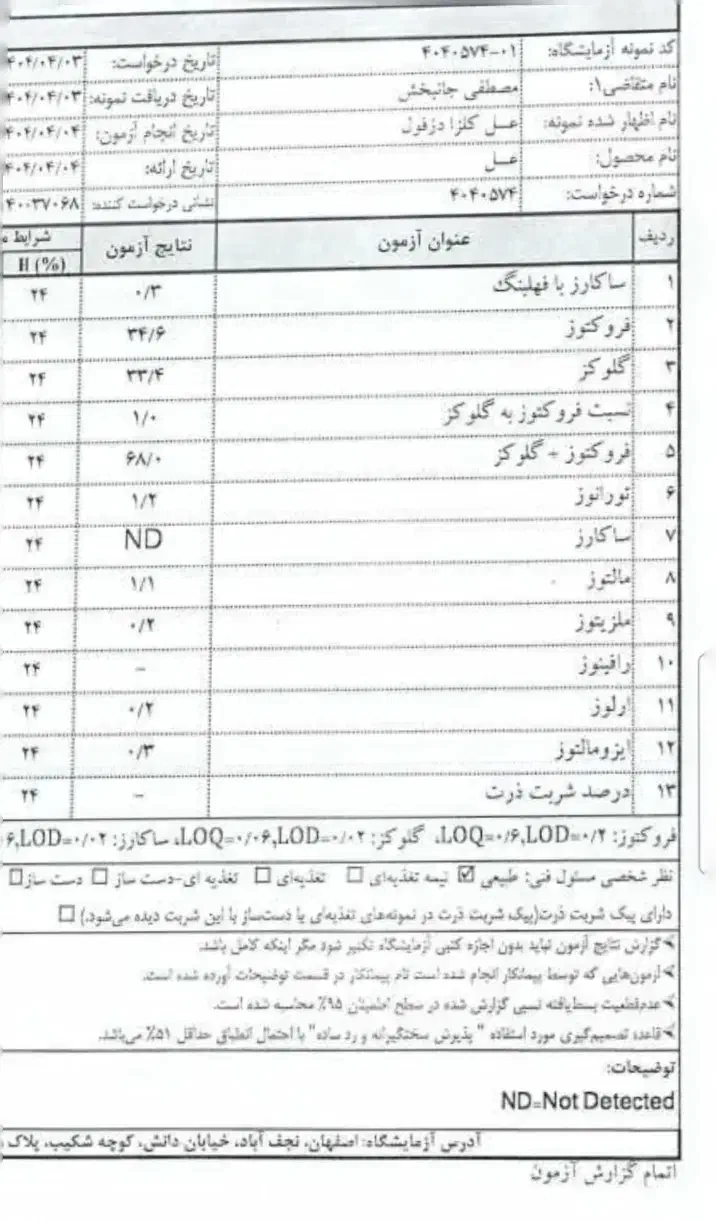 کد نمونه آزمایشگاه: ۴۰۴۰۵۷۴-۰۱ تاریخ درخواست: ۴۰۴/۰۴/۰۳
نام متقاضی۱: مصطفی جانبخش تاریخ دریافت نمونه: ۴۰۴/۰۴/۰۳
نام اظهار شده نمونه: عسل کلزا دزفول تاریخ انجام آزمون: ۴۰۴/۰۴/۰۴
نام محصول: عسل تاریخ ارائه: ۴۰۴/۰۴/۰۴
شماره درخواست: ۴۰۴۰۵۷۴ نشانی درخواست کننده: ۴۰۰۳۷۰۶۸
ردیف عنوان آزمون نتایج آزمون شرایط
H (%)
۱ ساکارز با فهلینگ ۰/۳ ۲۴
۲ فروکتوز ۳۴/۶ ۲۴
۳ گلوکز ۳۳/۴ ۲۴
۴ نسبت فروکتوز به گلوکز ۱/۰ ۲۴
۵ فروکتوز + گلوکز ۶۸/۰ ۲۴
۶ تورانوز ۱/۲ ۲۴
۷ ساکارز ND ۲۴
۸ مالتوز ۱/۱ ۲۴
۹ ملزیتوز ۰/۲ ۲۴
۱۰ رافینوز - ۲۴
۱۱ ارلوز ۰/۲ ۲۴
۱۲ ایزومالتوز ۰/۳ ۲۴
۱۳ درصد شربت ذرت - ۲۴
فروکتوز: LOQ=۰/۶,LOD=۰/۲، گلوکز: LOQ=۰/۰۶,LOD=۰/۰۲، ساکارز: ۶,LOD=۰/۰۲
نظر شخصی مسئول فنی: طبیعی ☑ نیمه تغذیه‌ای ☐ تغذیه‌ای ☐ تغذیه ای-دست ساز ☐ دست ساز ☐
دارای پیک شربت ذرت(پیک شربت ذرت در نمونه‌های تغذیه‌ای یا دست‌ساز با این شربت دیده می‌شود.) ☐
➤گزارش نتایج آزمون نباید بدون اجازه کتبی آزمایشگاه تکثیر شود مگر اینکه کامل باشد.
➤آزمون‌هایی که توسط پیمانکار انجام شده است نام پیمانکار در قسمت توضیحات آورده شده است.
➤عدم‌قطعیت بسط‌یافته نسبی گزارش شده در سطح اطمینان ۹۵٪ محاسبه شده است.
➤قاعده تصمیم‌گیری مورد استفاده " پذیرش سختگیرانه و رد ساده" با احتمال انطباق حداقل ۵۱٪ می‌باشد.
توضیحات:
ND=Not Detected
آدرس آزمایشگاه: اصفهان، نجف آباد، خیابان دانش، کوچه شکیب، پلاک
اتمام گزارش آزمون